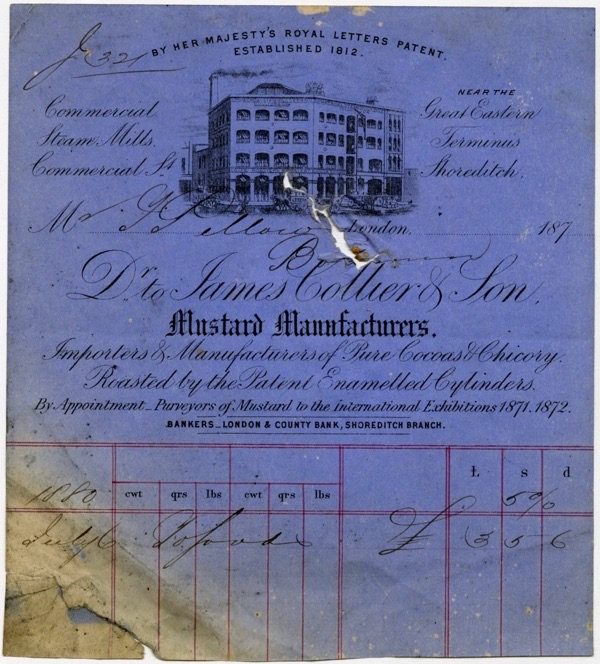 321
BY HER MAJESTY'S ROYAL LETTERS PATENT.
ESTABLISHED 1812.
Commercial
Steam Mills.
Commercial St
NEAR THE
Great Eastern
Terminus
Shoreditch.
Mr London, 187
Dr. to James Collier & Son,
Mustard Manufacturers.
Importers & Manufacturers of Pure Cocoas & Chicory.
Roasted by the Patent Enamelled Cylinders.
By Appointment - Purveyors of Mustard to the International Exhibitions 1871. 1872.
BANKERS - LONDON & COUNTY BANK, SHOREDITCH BRANCH.
Ł s d
1880. cwt qrs lbs cwt qrs lbs 5%
July 6 To goods £ 3 5 6